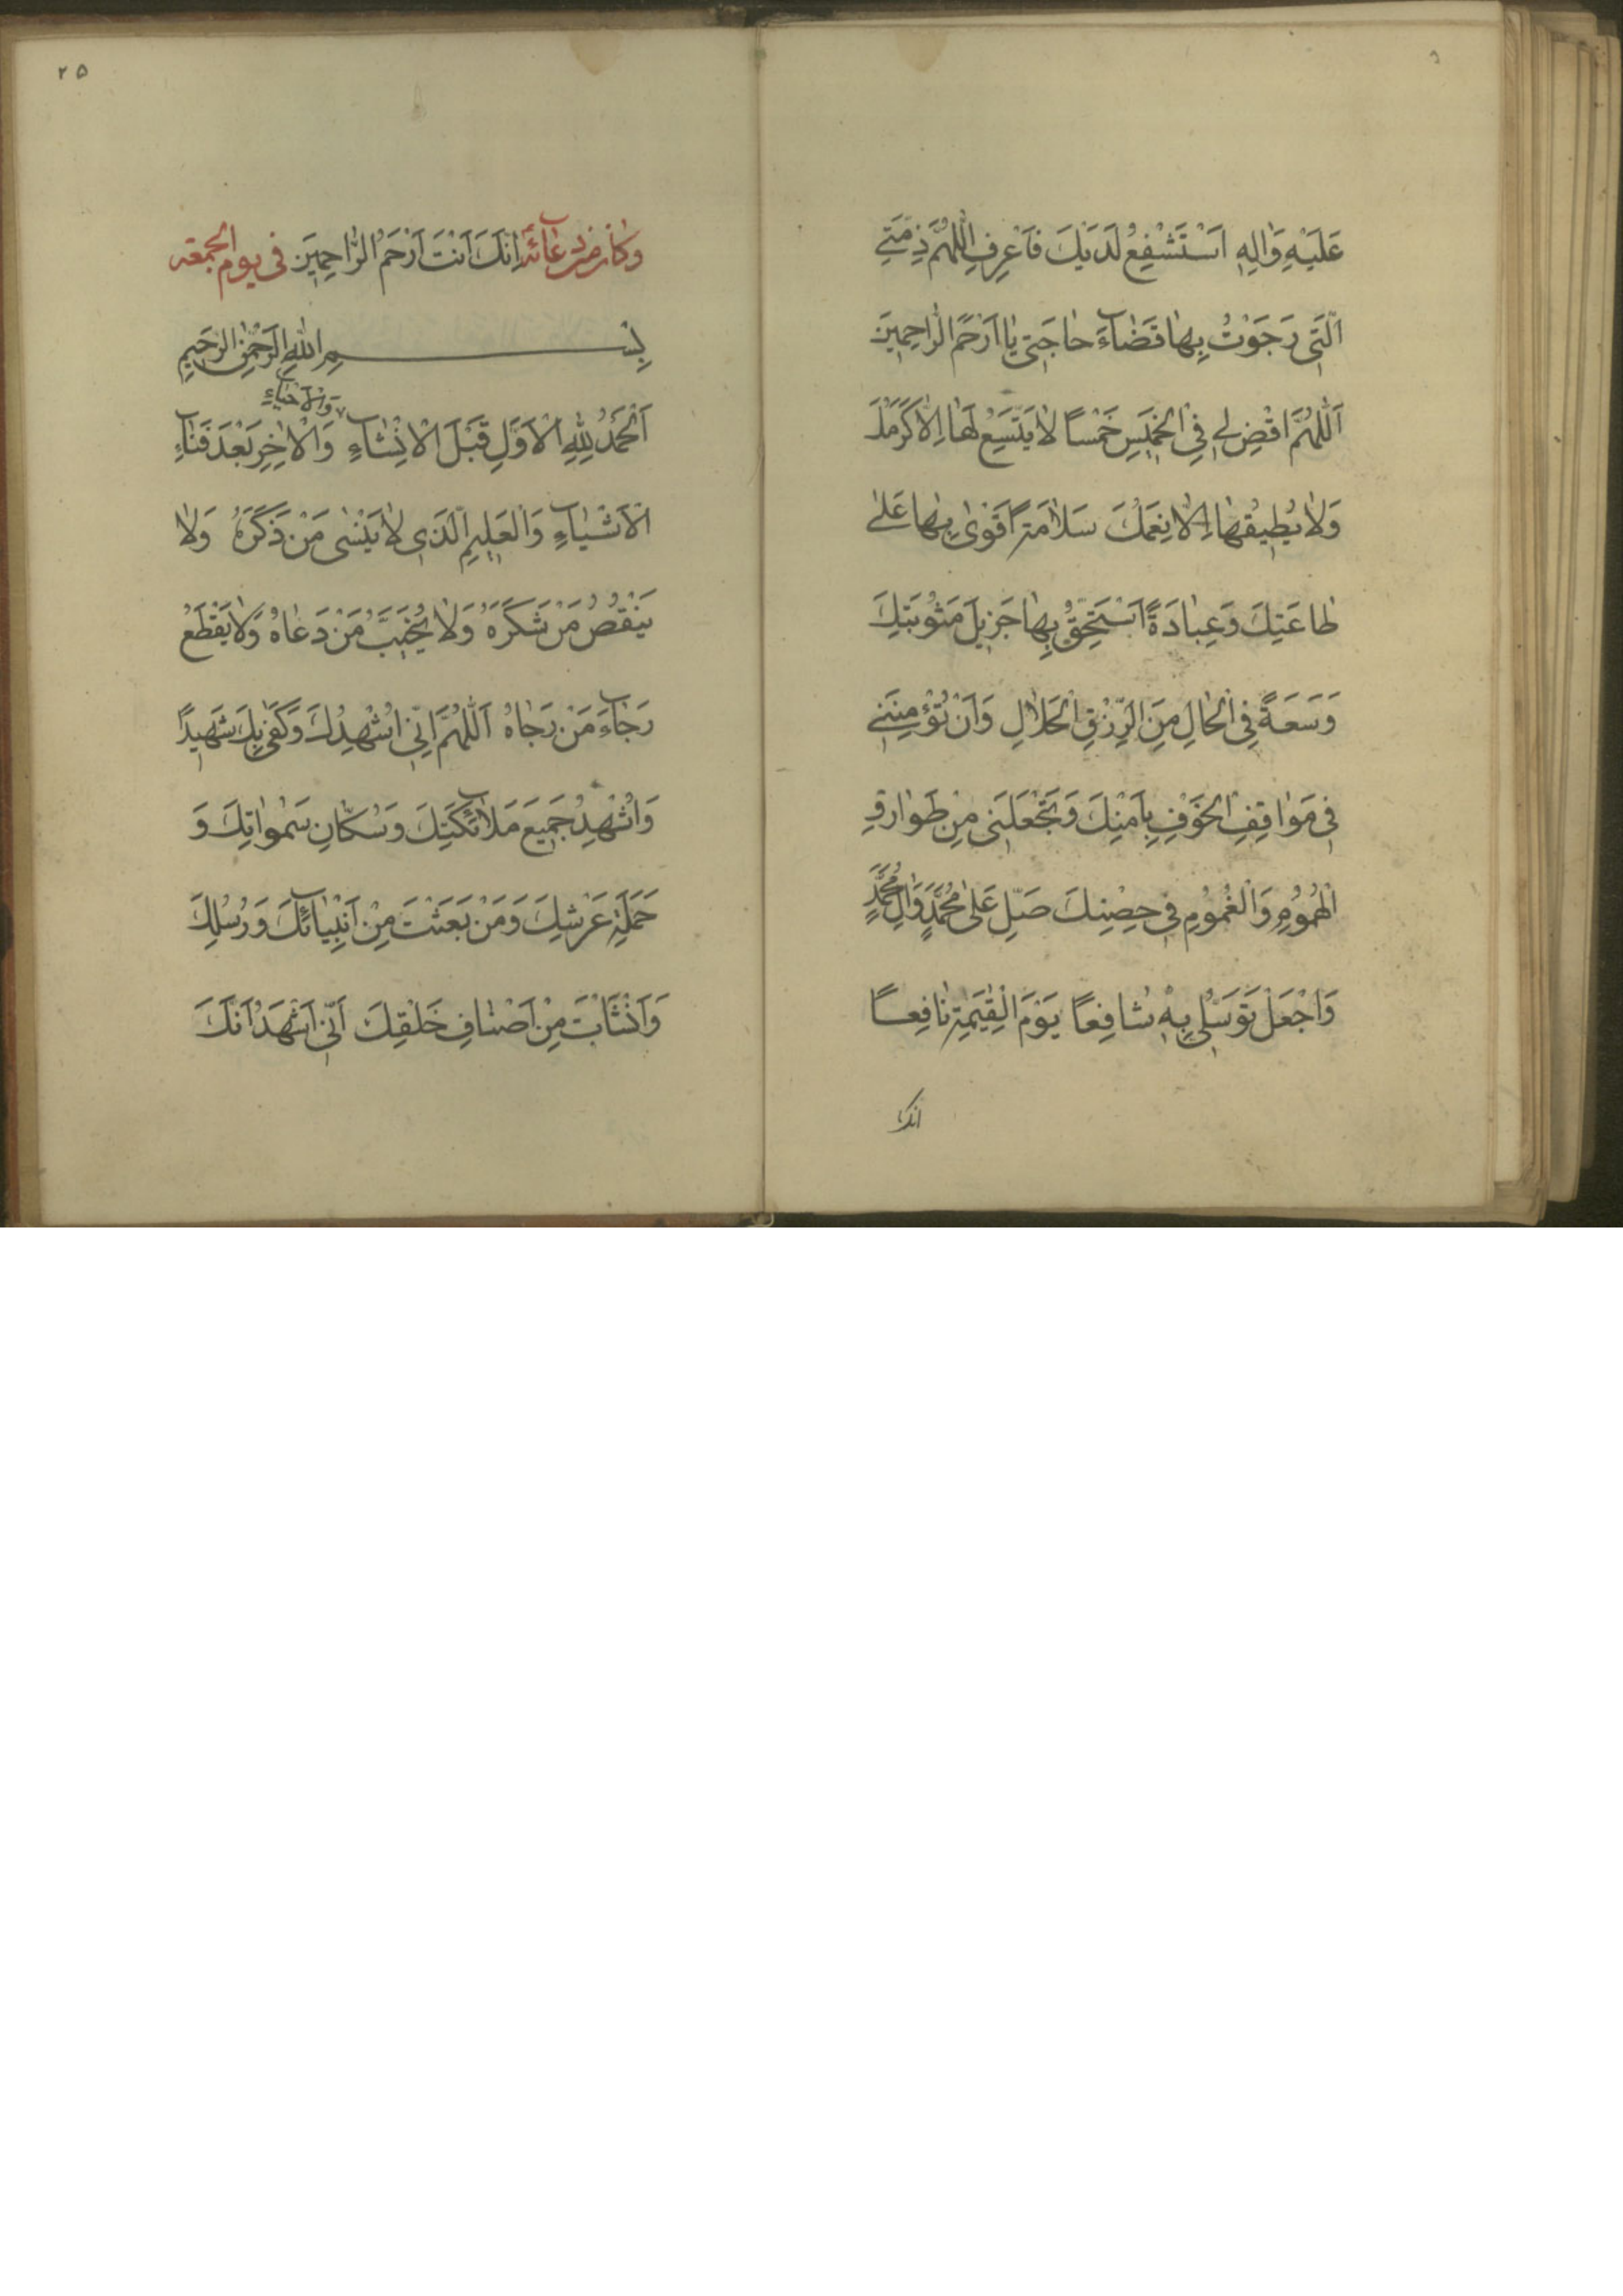 عَلَيْهِ وَاٰلِهِ اَسْتَشْفِعُ لَدَيْكَ فَاعْرِفِ اللّٰهُمَّ ذِمَّتِيَ
الَّتِى رَجَوْتُ بِهٰا قَضٰاۤءَ حٰاجَتِى يٰا اَرْحَمَ الرّٰاحِمِينَ
اَللّٰهُمَّ اقْضِ لِى فِى الْخَمِيسِ خَمْسًا لٰا يَتَّسِعُ لَهٰا اِلّٰا كَرَمُكَ
وَلٰا يُطِيقُهٰا اِلّٰا نِعَمُكَ سَلٰامَةً اَقْوٰى بِهٰا عَلٰى
طٰاعَتِكَ وَعِبٰادَةً اَسْتَحِقُّ بِهٰا جَزِيلَ مَثُوبَتِكَ
وَسَعَةً فِى الْحٰالِ مِنَ الرِّزْقِ الْحَلٰالِ وَاَنْ تُؤْمِنَنِى
فِى مَوٰاقِفِ الْخَوْفِ بِاَمْنِكَ وَتَجْعَلَنِى مِنْ طَوٰارِقِ
الْهُمُومِ وَالْغُمُومِ فِى حِصْنِكَ صَلِّ عَلٰى مُحَمَّدٍ وَاٰلِ مُحَمَّدٍ
وَاجْعَلْ تَوَسُّلِى بِهِ شٰافِعًا يَوْمَ الْقِيٰمَةِ نٰافِعًا
انك
٢٥
وكان من دعائه اِنَّكَ اَنْتَ اَرْحَمُ الرّٰاحِمِينَ فى يوم الجمعة
بِسْمِ اللّٰهِ الرَّحْمٰنِ الرَّحِيمِ
وَالْاَحْيٰاۤءِ
اَلْحَمْدُ لِلّٰهِ الْاَوَّلِ قَبْلَ الْاِنْشٰاۤءِ وَالْاٰخِرِ بَعْدَ فَنٰاۤءِ
الْاَشْيٰاۤءِ وَالْعَلِيمِ الَّذِى لٰا يَنْسٰى مَنْ ذَكَرَهُ وَلٰا
يَنْقُصُ مَنْ شَكَرَهُ وَلٰا يُخَيِّبُ مَنْ دَعٰاهُ وَلٰا يَقْطَعُ
رَجٰاۤءَ مَنْ رَجٰاهُ اَللّٰهُمَّ اِنِّى اُشْهِدُكَ وَكَفٰى بِكَ شَهِيدًا
وَاُشْهِدُ جَمِيعَ مَلٰاۤئِكَتِكَ وَسُكّٰانِ سَمٰوٰاتِكَ وَ
حَمَلَةِ عَرْشِكَ وَمَنْ بَعَثْتَ مِنْ اَنْبِيٰاۤئِكَ وَرُسُلِكَ
وَاَنْشَأْتَ مِنْ اَصْنٰافِ خَلْقِكَ اَنِّى اَشْهَدُ اَنَّكَ